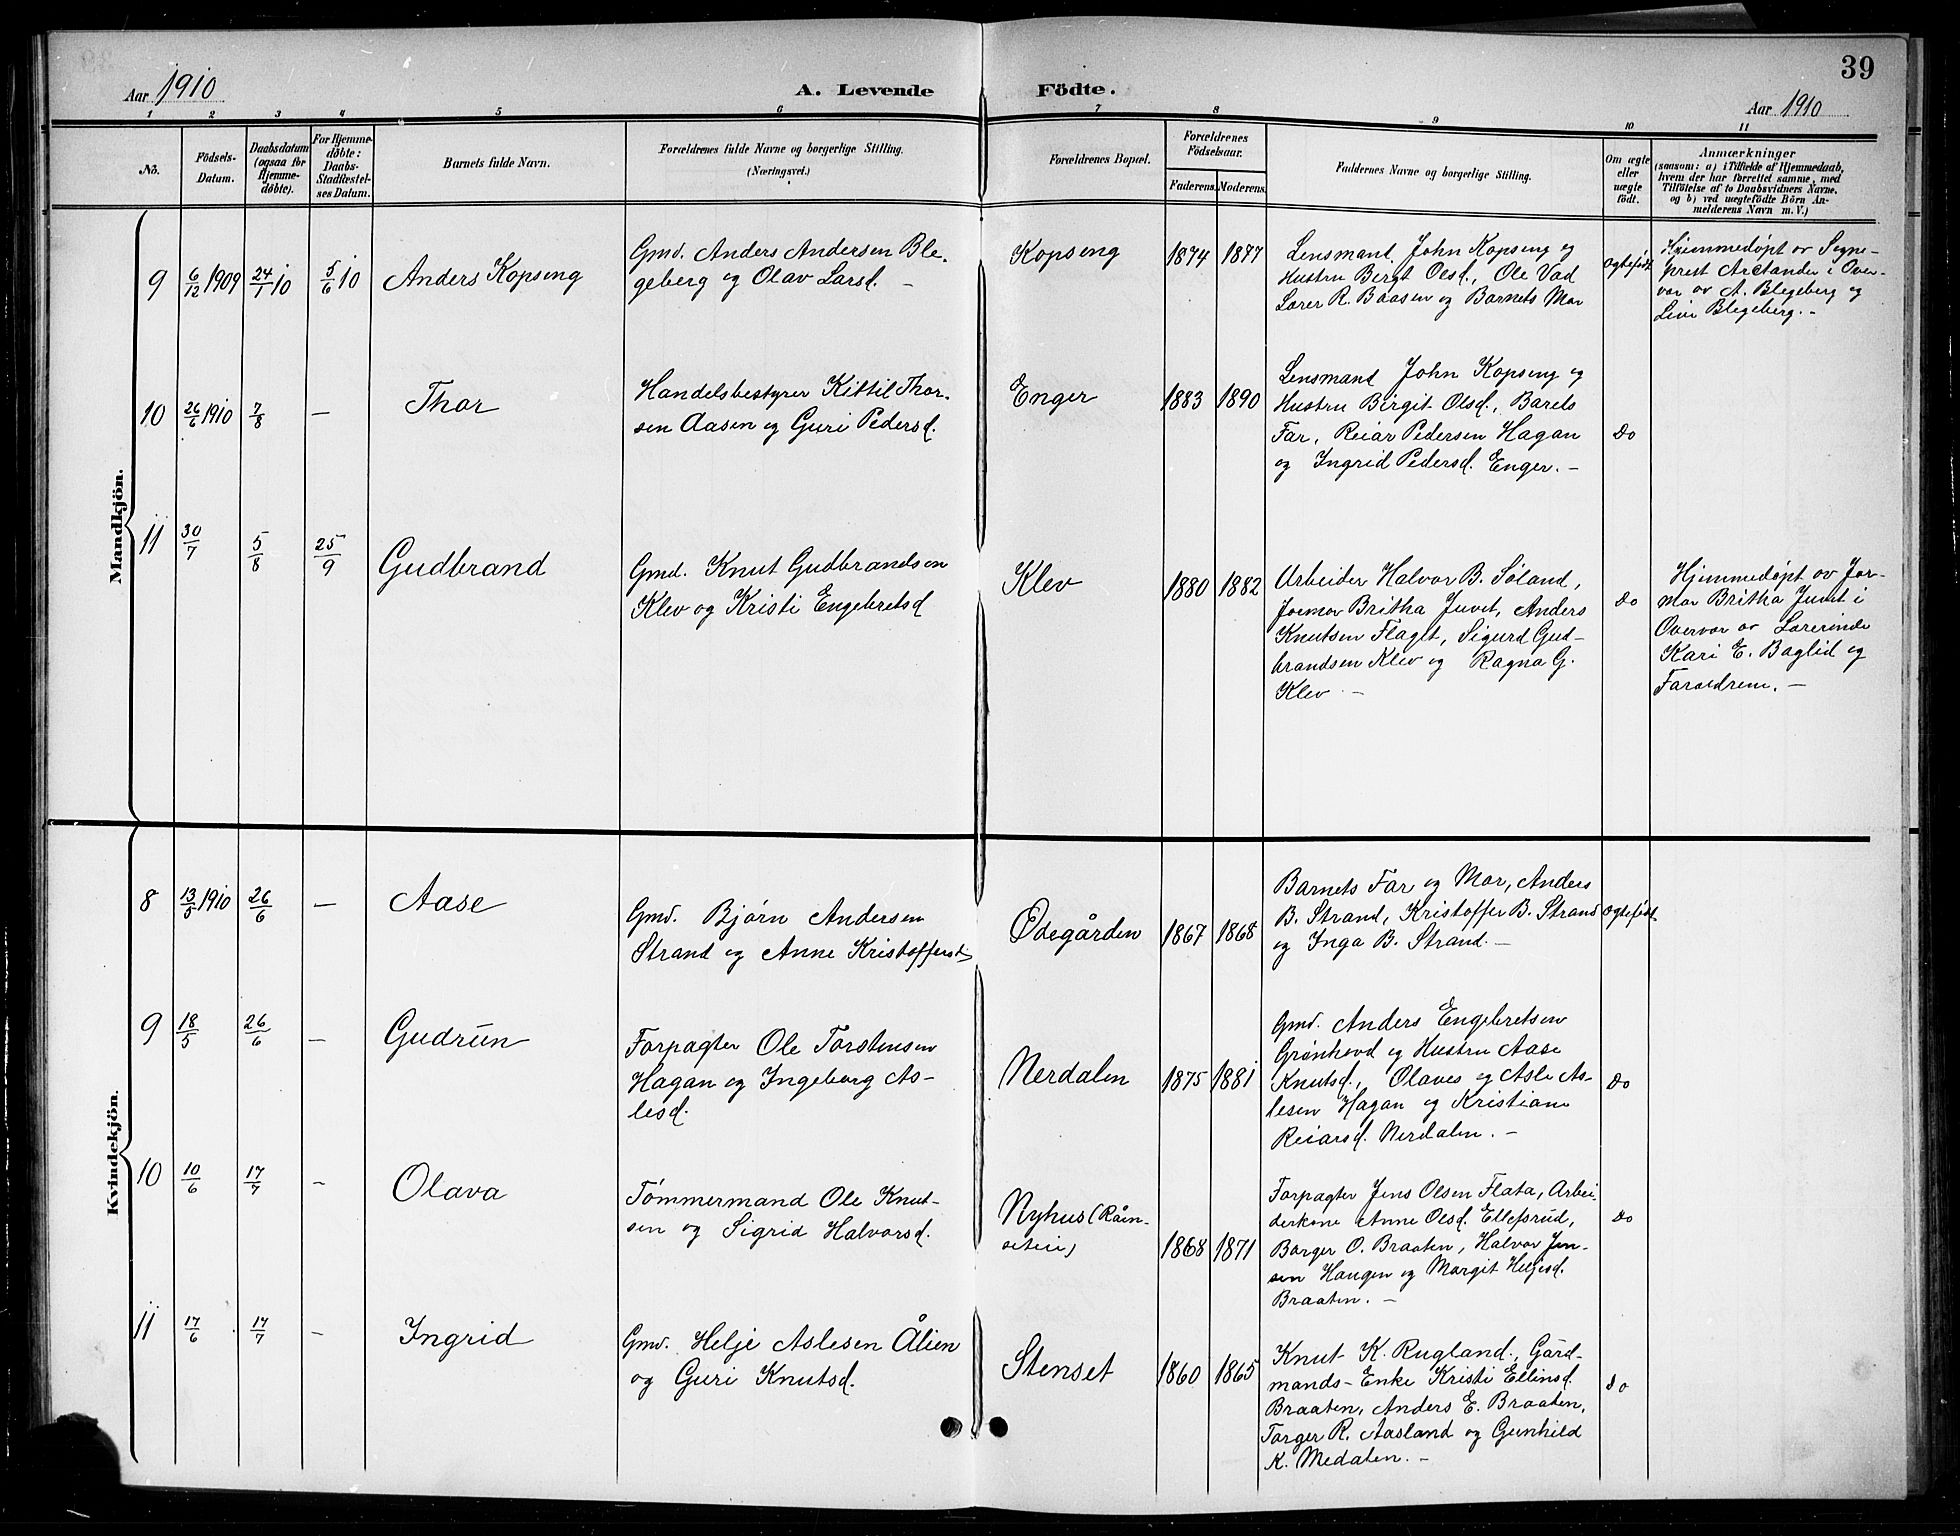 39
Aar 1910
A. Levende
Födte.
Aar 1910
1 2 3 4 5 6 7 8 9 10 11
No.
Födsels-
Datum.
Daabsdatum
(ogsaa for
Hjemme-
döbte).
For Hjemme-
döbte:
Daabs-
Stadfæstel-
ses Datum.
Barnets fulde Navn.
Forældrenes fulde Navne og borgerlige Stilling.
(Næringsvei.)
Forældrenes Bopæl.
Forældrenes
Födselsaar.
Faderens. Moderens.
Faddernes Navne og borgerlige Stilling.
Om ægte
eller
uægte
födt.
Anmærkninger
(saasom: a) i Tilfælde af Hjemmedaab,
hvem der har forrettet samme, med
Tilföielse af to Daabsvidners Navne,
og b) ved uægtefödte Börn An-
melderens Navn m. V.)
Mandkjön.
9
6/12 1909
24/1 10
5/6 10
Anders Kopseng
Gmd. Anders Andersen Ble-
geberg og Olav Larsd. -
Kopseng
1874
1877
Lensmand John Kopseng og
Hustru Bergt Olsd., Ole Vad
Lærer R. Baasen og Barnets Mor
Ogtefødt
Hjemmedøpt av Sogne-
prest Arctander i Over-
vær av A. Blegeberg og
Livi Blegeberg. -
10
26/6 1910
7/8
-
Thor
Handelsbestyrer Kittil Thor-
sen Aasen og Guri Pedersd.
Enger
1883
1890
Lensmand John Kopseng og
Hustru Birgit Olsd., Barets
Far, Reiar Pedersen Hagan
og Ingrid Pedersd. Enger. -
Do
11
30/7
5/8
25/9
Gudbrand
Gmd. Knut Gudbrandsen
Klev og Kristi Engebretsd
Klev
1880
1882
Arbeider Halvor B. Søland,
Jormor Britha Juvet, Anders
Knutsen Flaget, Sigurd Gud-
brandsen Klev og Ragna G.
Klev -
Do
Hjemmedøpt av Jor-
mor Britha Juvet i
Overvær av Lærerinde
Kari E. Baglid og
Foræedrene. -
Kvindekjön.
8
13/5 1910
26/6
-
Aase
Gmd. Bjørn Andersen
Strand og Anne Kristoffersd
Ødegården
1867
1868
Barnets Far og Mor, Anders
B. Strand, Kristoffer B. Strand
og Inga B. Strand. -
Ogtefødt
9
18/5
26/6
-
Gudrun
Forpagter Ole Torstensen
Hagan og Ingeborg As-
lesd.
Nerdalen
1875
1881
Gmd. Anders Engebretsen
Grønhovd og Hustru Aase
Knutsd., Olaves og Asle As-
lesen Hagan og Kristiane
Reiarsd. Nerdalen. -
Do
10
10/6
17/7
-
Olava
Tømmermand Ole Knut-
sen og Sigrid Halvorsd.
Nyhus (Råen-
1868
1871
Forpagter Jens Olsen Flata, Arbei-
derkone Anne Olsd. Ellefsrud,
Borger O. Braaten, Halvor Jen-
sen Haugen og Margit Heljesd.
Braaten. -
Do
11
17/6
17/7
-
Ingrid
Gmd. Helje Aslesen Ålien
og Guri Knutsd.
Stenset
1860
1865
Knut K. Rugland, Gård-
mands-Enke Kristi Ellinsd.
Braaten, Anders E. Braaten,
Torger R. Aasland og Gunhild
K. Medalen. -
Do